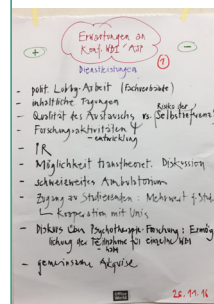 Erwartungen an
Konf. WBI / ASP
+
-
Dienstleistungen
1
- polit. Lobby-Arbeit (Fachverbände)
- inhaltliche Tagungen
Risiko der
- Qualität des Austauschs vs. Selbstreferenz
- Forschungsaktivitäten +
-entwicklung
- PR
- Möglichkeit transtheoret. Diskussion
- schweizweites Ambulatorium
- Zugang zu Studierenden: Mehrwert f. Stud.
Kooperation mit Unis
- Diskurs über Psychotherapie-Forschung: Ermög
lichung der Teilnahme für einzelne WBI
- gemeinsame Akquise
26.11.16